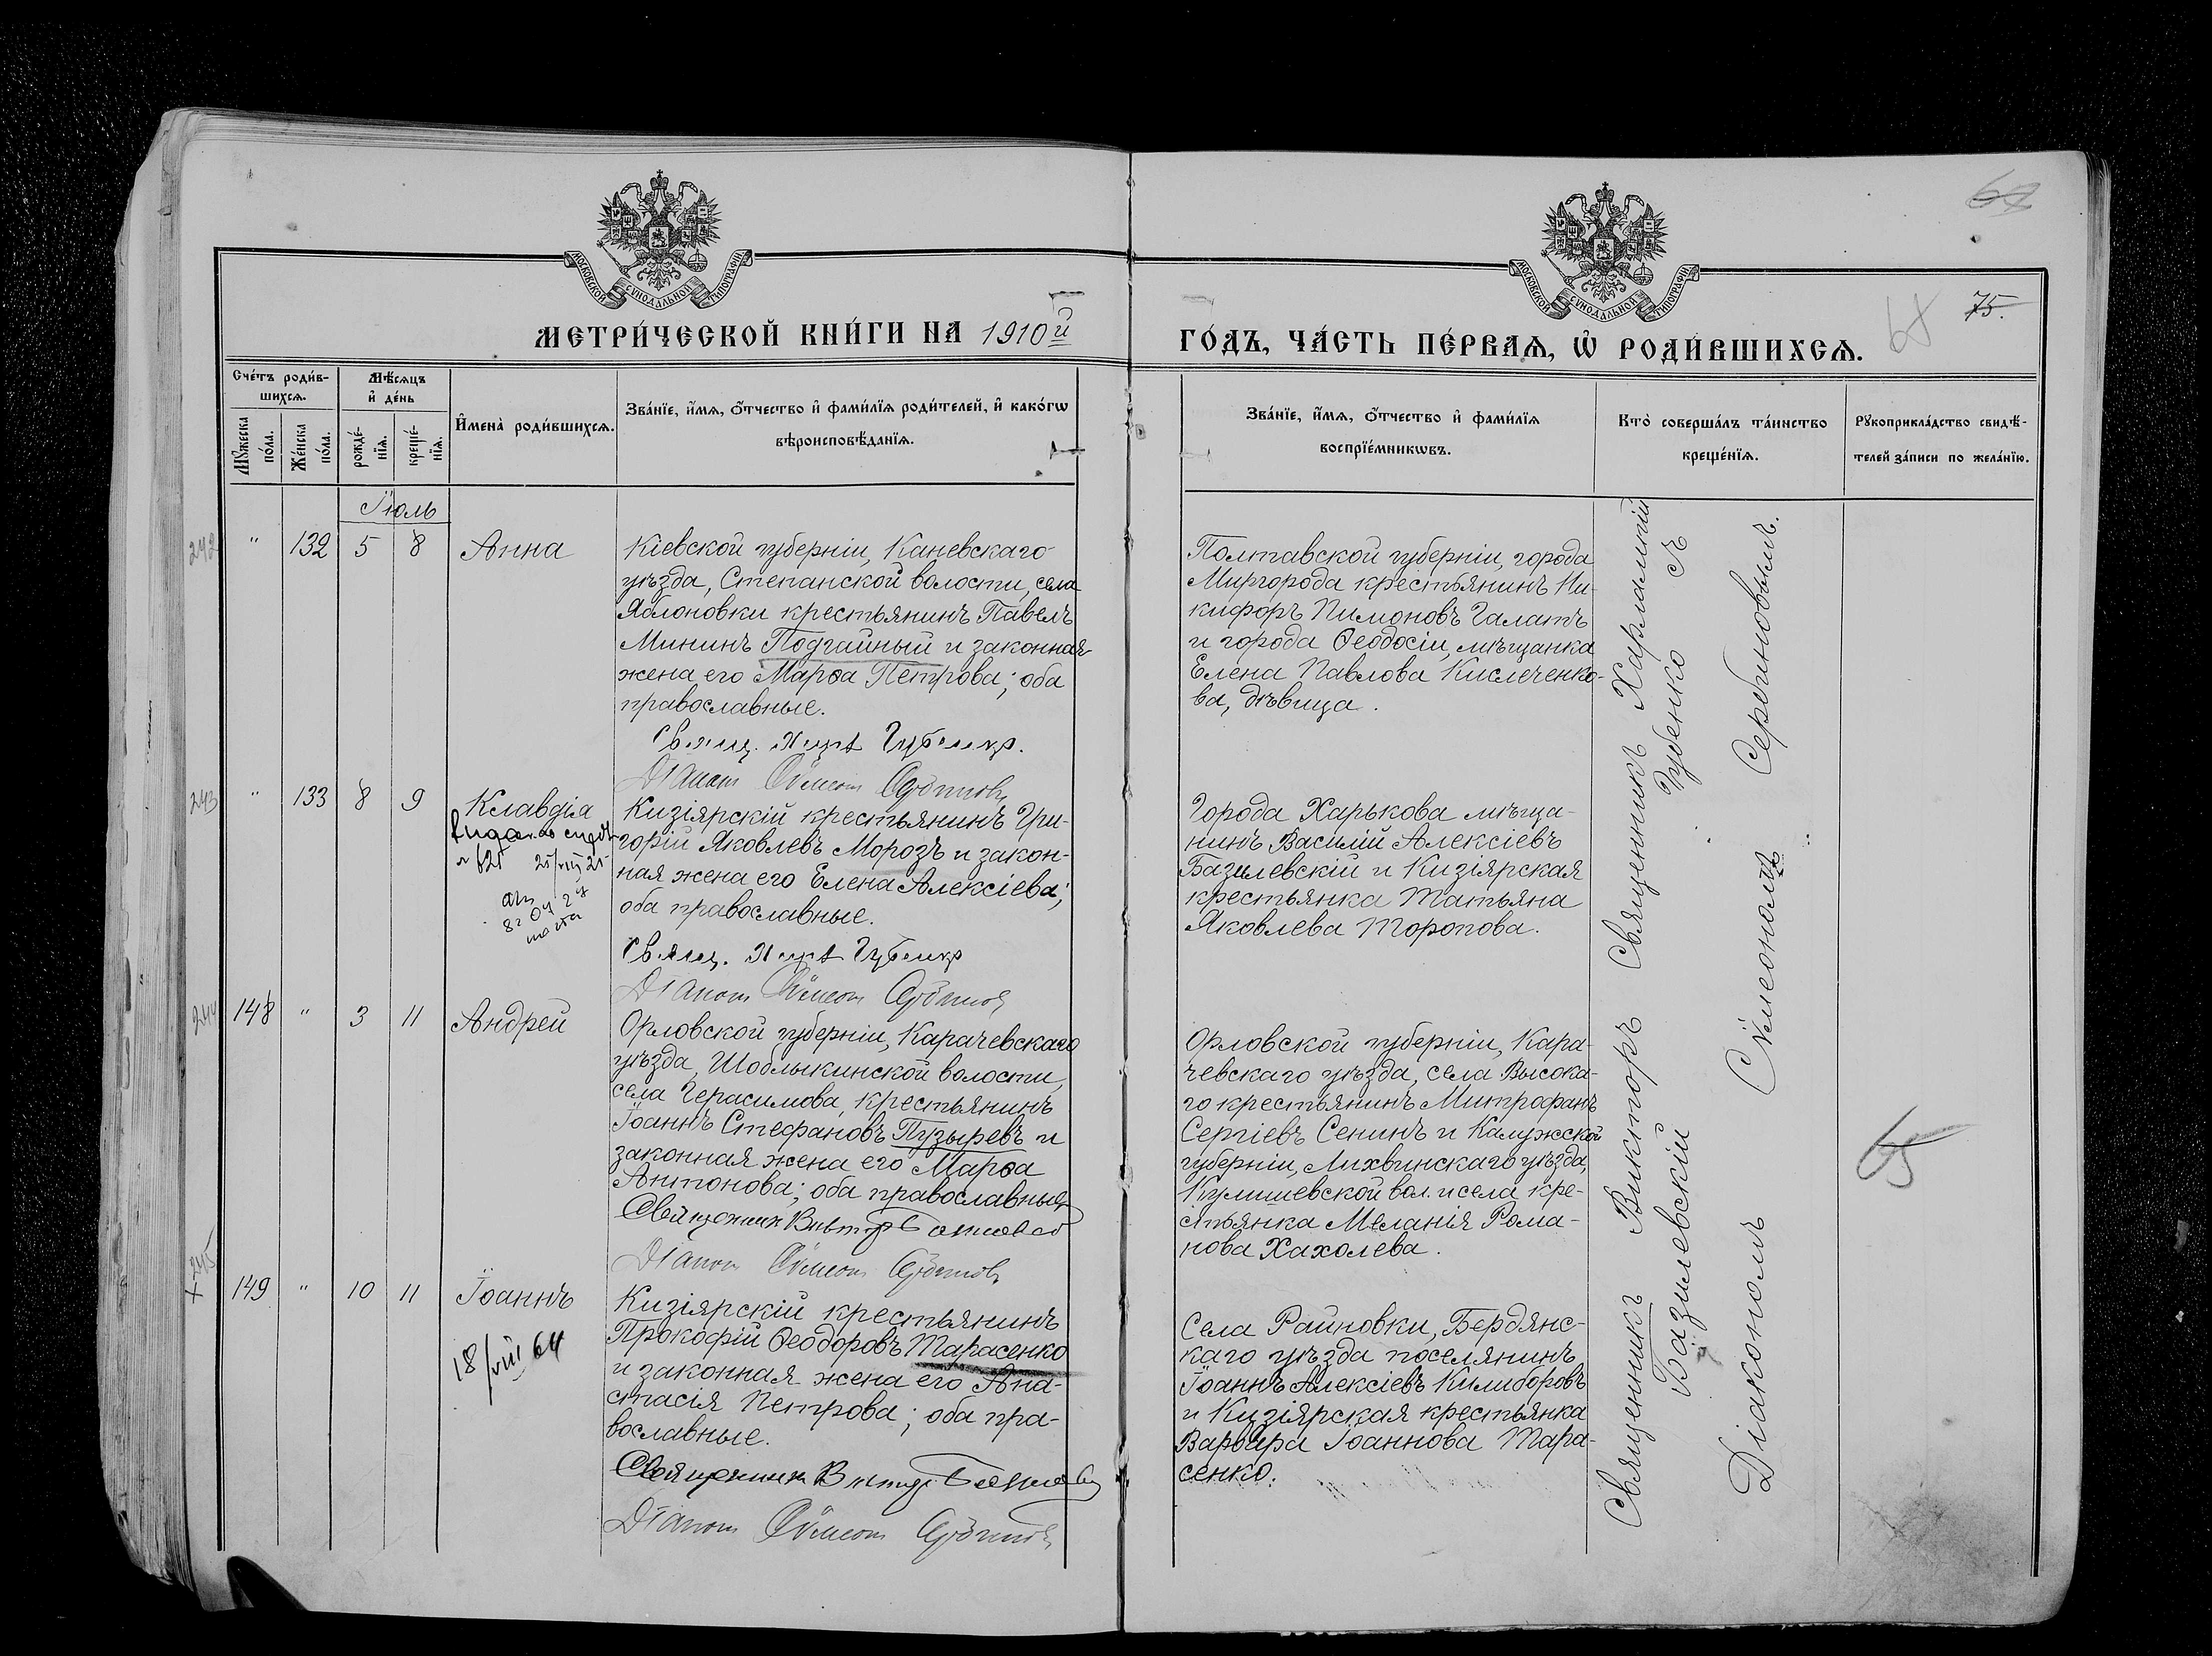 67
МОСКОВСКОЙ СУНОДАЛЬНОЙ ТИПОГРАФІИ
МОСКОВСКОЙ СУНОДАЛЬНОЙ ТИПОГРАФІИ
МЕТРИ́ЧЕСКОЙ КНИ́ГИ НА 1910й
ГО́ДЪ, ЧА́СТЬ ПЕ́РВАѦ, Ѡ҆ РОДИ́ВШИХСѦ.
75.
Сче́тъ роди́в-
шихсѧ.
Мꙋжеска
по́ла.
Же́нска
по́ла.
Мѣ́сѧцъ
и҆ де́нь
рожде́-
нїѧ.
креще́-
нїѧ.
И҆мена̀ роди́вшихсѧ.
Зва́нїе, и҆́мѧ, ѻ҆́тчество и҆ фами́лїѧ роди́телей, и҆ како́гѡ
вѣроисповѣ́данїѧ.
Зва́нїе, и҆́мѧ, ѻ҆́тчество и҆ фами́лїѧ
воспрїе́мникѡвъ.
Кто̀ соверша́лъ та́инство
креще́нїѧ.
Рꙋкоприкла́дство свидѣ́-
телей за́писи по жела́нїю.
Іюль
242 " 132 5 8 Анна
Кіевской губерніи, Каневскаго
уѣзда, Степанской волости, села
Яблоновки крестьянинъ Павелъ
Мининъ Подчайный и законная
жена его Марѳа Петрова; оба
православные.
Свящ. Губенко.
Діаконъ Сѵмеонъ Серебниковъ
Полтавской губерніи, города
Миргорода крестьянинъ Ни-
кифоръ Пимоновъ Галатъ
и города Ѳеодосіи, мѣщанка
Елена Павлова Кислеченко-
ва, дѣвица.
243 " 133 8 9 Клавдія
25/VIII 25
Кизіярскій крестьянинъ Гри-
горій Яковлевъ Морозъ и закон-
ная жена его Елена Алексіева;
оба православные.
Свящ. Губенко
Діаконъ Сѵмеонъ
Города Харькова мѣща-
нинъ Василій Алексіевъ
Базилевскій и Кизіярская
крестьянка Татьяна
Яковлева Торопова.
244 148 " 3 11 Андрей
Орловской губерніи, Карачевскаго
уѣзда, Шоблыкинской волости,
села Герасимова, крестьянинъ
Іоаннъ Стефановъ Пузыревъ и
законная жена его Марѳа
Антонова; оба православные
Священникъ Викторъ
Діаконъ Сѵмеонъ
Орловской губерніи, Кара-
чевскаго уѣзда, села Высока-
го крестьянинъ Митрофанъ
Сергіевъ Сенинъ и Калужской
губерніи, Лихвинскаго уѣзда,
Кулишевской вол. и села кре-
стьянка Меланія Рома-
нова Хахолева.
65
245
× 149 " 10 11 Іоаннъ
18/VIII 64
Кизіярскій крестьянинъ
Прокофій Ѳеодоровъ Тарасенко
и законная жена его Ана-
стасія Петрова; оба пра-
вославные.
Священникъ Викторъ
Діаконъ Сѵмеонъ
Села Райновки, Бердянс-
каго уѣзда поселянинъ
Іоаннъ Алексіевъ Килиборовъ
и Кизіярская крестьянка
Варвара Іоаннова Тара-
сенко.
Священникъ Викторъ Священникъ Харлампій
Базилевскій Губенко съ
Діакономъ Сѵмеономъ Серебиновымъ.